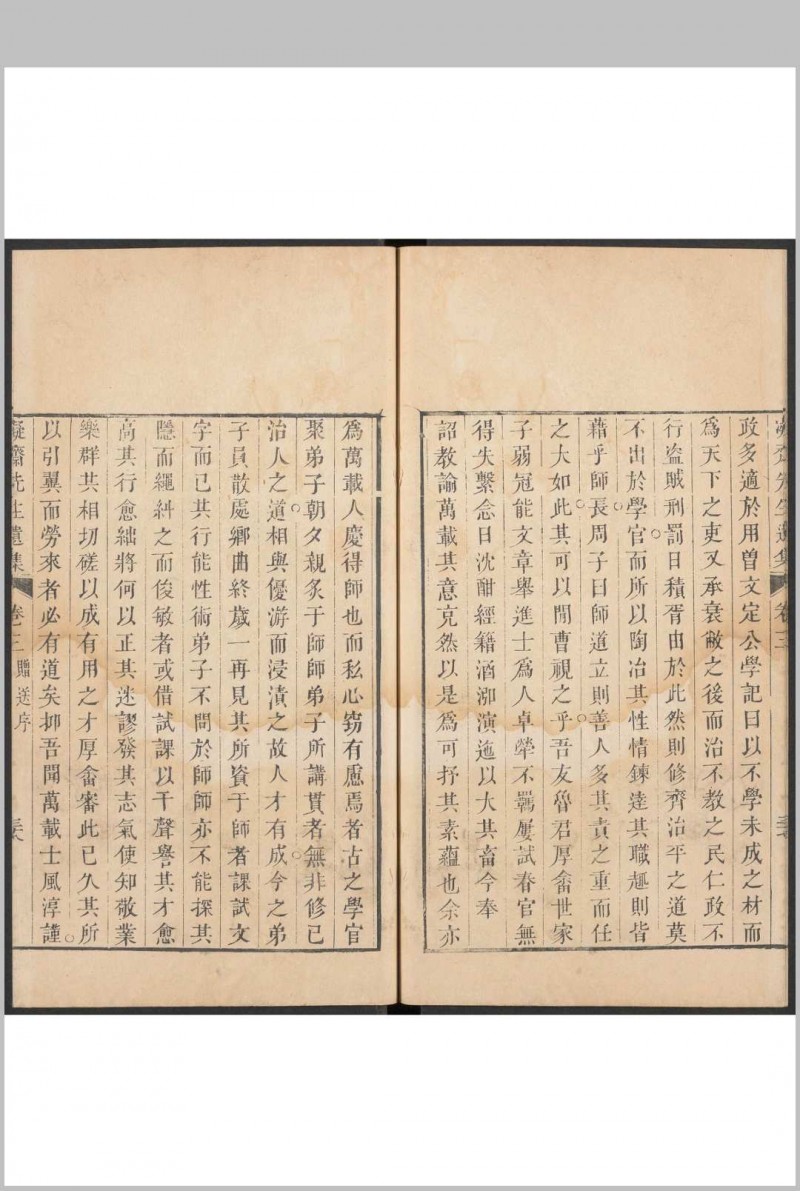 政多適於用曾文定公學記曰以不學未成之材而
爲天下之吏又承衰敝之後而治不教之民仁政不
行盜賊刑罰日積胥由於此然則修齊治平之道莫
不出於學官而所以陶冶其性情鍊達其職趣則皆
藉乎師長周子曰師道立則善人多其責之重而任
之大如此其可以閒曹視之乎吾友魯君厚畬世家
子弱冠能文章舉進士爲人卓犖不羈屢試春官無
得失繫念日沈酣經籍涵泖演迤以大其畜今奉
詔教諭萬載其意充然以是爲可抒其素蘊也余亦
爲萬載人慶得師也而私心竊有慮焉者古之學官
聚弟子朝夕親炙于師師弟子所講貫者無非修已
治人之道相與優游而浸漬之故人才有成今之弟
子員散處鄉曲終歲一再見其所資于師者課試文
字而已其行能性術弟子不問於師師亦不能探其
隱而繩糾之而俊敏者或借試課以干聲譽其才愈
高其行愈絀將何以正其迷謬發其志氣使知敬業
樂群其相切磋以成有用之才厚畬審此已久其所
以引翼而勞來者必有道矣抑吾聞萬載士風淳謹
凝齋先生遺集 卷三 贈送序